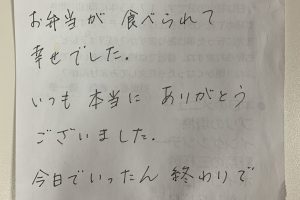 お弁当が 食べられて
幸せでした.
いつも 本当に ありがとう
ございました.
今日でいったん 終わりで